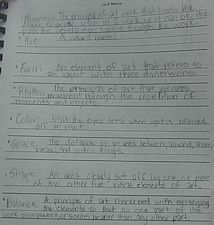 Movement The principal of art that leads the
viewer to
Hue A color's name
Form An element of art that refers to
an object with three dimensions.
Rhythm The principal of art that indicates
movement through the repetition of
elements and objects.
Color What the eyes sees when light is reflected
off an object.
Space The distance or an area between, around, above,
below, and within things.
Shape An area clearly set off by one or more
of the other five visual elements of art.
Balance A principle of art concerned with arranging
the elements so that no one part of the
work overpowers, or seems heavier than any other part.